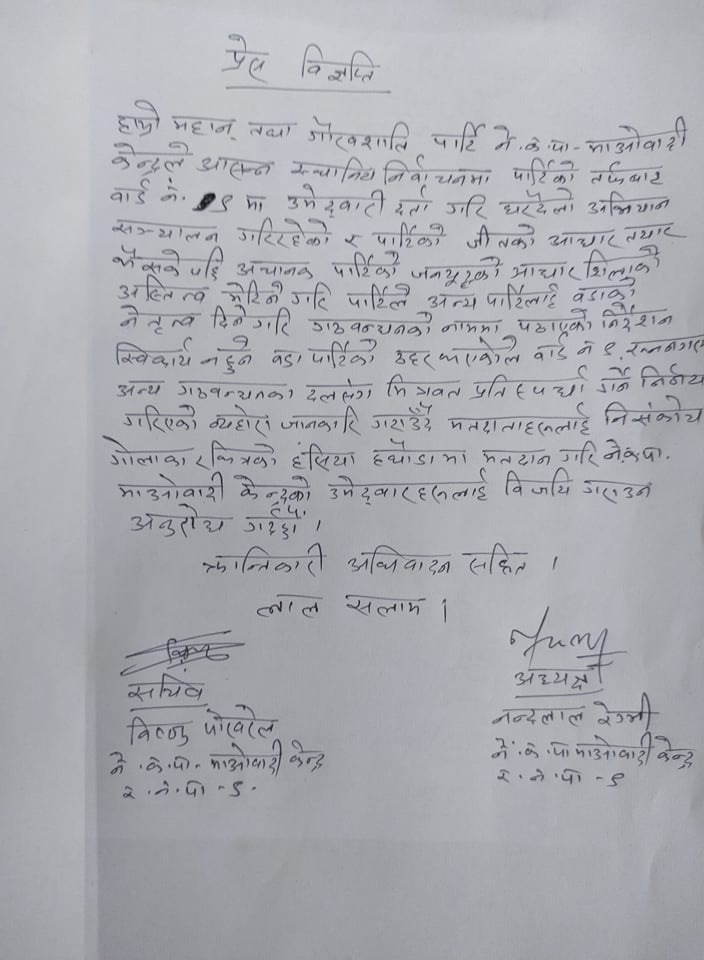 प्रेस विज्ञप्ति
हाम्रो महान् तथा गौरवशालि पार्टि ने.क.पा-माओवादी
केन्द्रले आसन्न स्थानिय निर्वाचनमा पार्टिको तर्फबाट
वार्ड नं. ९ मा उमेद्वारी दर्ता गरि घरदैलो अभियान
सञ्चालन गरिरहेको र पार्टिको जीतको आधार तयार
भै सके पछि अचानक पार्टिको जनयूद्धको आधार शिलाको
अस्तित्व मेटिने गरि पार्टिले अन्य पार्टिलाई वडाको
नेतृत्व दिने गरि गठवन्धनको नाममा पठाएको निर्देशन
स्विकार्य नहुने वडा पार्टिको ठहर भएकोले वार्ड नं ९ रत्ननगरमा
अन्य गठवन्धनका दलसंग मित्रवत प्रतिष्पर्धा गर्ने निर्णय
गरिएको व्यहोरा जानकारि गराउँदै मतदाताहरुलाई निसंकोच
गोलाकार भित्रको हंसिया हथौडामा मतदान गरि ने.क.पा.
माओवादी केन्द्रको उमेद्वारहरुलाई विजयि गराउन
अनुरोध गर्दछौं ।
क्रान्तिकारी अभिवादन सहित ।
लाल सलाम ।
सचिव
विष्णु पौडेल
ने.क.पा-माओवादी केन्द्र
र.न.पा-९.
अध्यक्ष
नन्दलाल रेग्मी
ने.क.पा माओवादी केन्द्र
र.न.पा-९